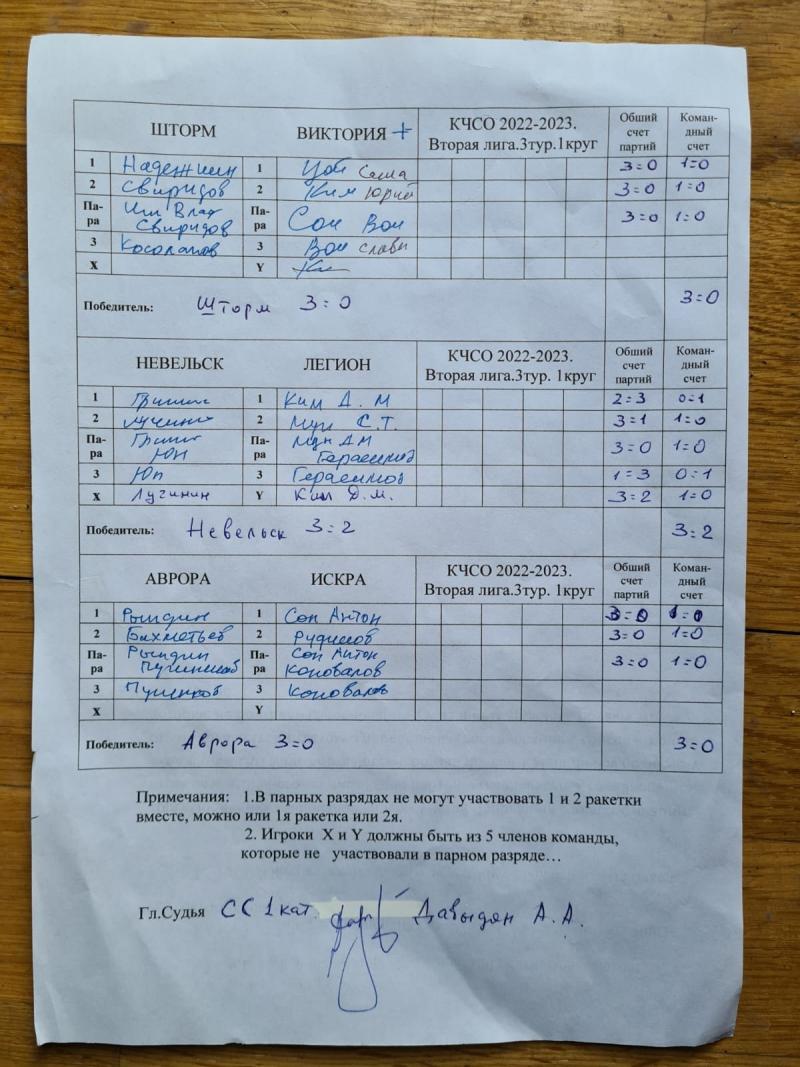 ШТОРМ ВИКТОРИЯ + КЧСО 2022-2023. Вторая лига.3тур.1круг Обший счет партий Коман-дный счет
1 Надежкин 1 Цой Саша 3=0 1=0
2 Свиридов 2 Ким Юрий 3=0 1=0
Па-ра Им Влад Свиридов Па-ра Сон Вон 3=0 1=0
3 Косолапов 3 Вон Слава
X Y
Победитель: Шторм 3=0 3=0
НЕВЕЛЬСК ЛЕГИОН КЧСО 2022-2023. Вторая лига.3тур. 1круг Обший счет партий Коман-дный счет
1 1 Ким Д. М 2=3 0=1
2 2 Мун С.Т. 3=1 1=0
Па-ра Юн Па-ра Мун ДМ Герасимов 3=0 1=0
3 Юн 3 Герасимов 1=3 0=1
X Лугинин Y Ким Д.М. 3=2 1=0
Победитель: Невельск 3=2 3=2
АВРОРА ИСКРА КЧСО 2022-2023. Вторая лига.3тур. 1круг Обший счет партий Коман-дный счет
1 Рындин 1 Сон Антон 3=0 1=0
2 Бахметьев 2 3=0 1=0
Па-ра Рындин Па-ра Сон Антон Коновалов 3=0 1=0
3 3 Коновалов
X Y
Победитель: Аврора 3=0 3=0
Примечания: 1.В парных разрядах не могут участвовать 1 и 2 ракетки
вместе, можно или 1я ракетка или 2я.
2. Игроки X и Y должны быть из 5 членов команды,
которые не участвовали в парном разряде…
Гл.Судья СС 1 кат. Давыдян А.А.